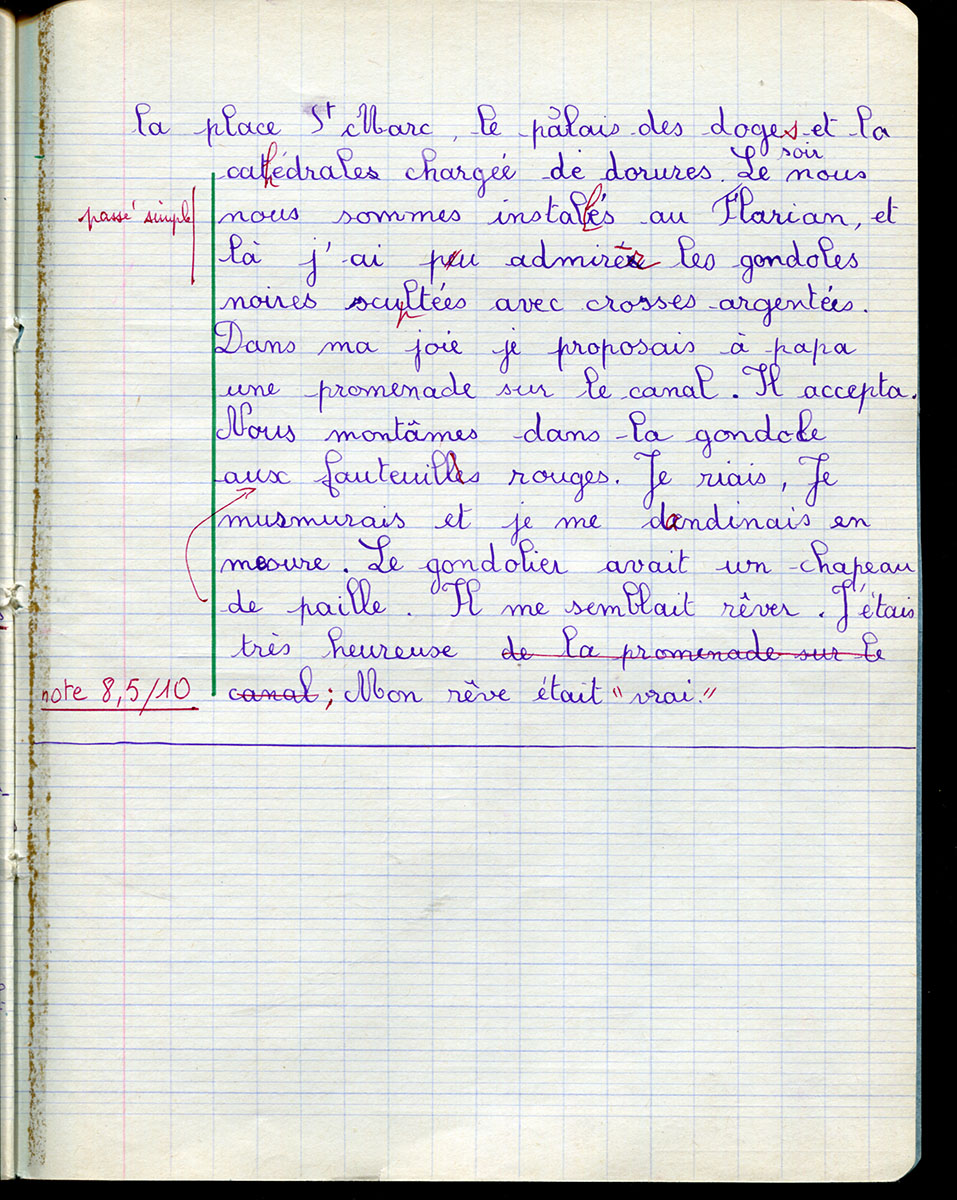 la place St Marc, le pâlais des doges et la
soir
cathédrales chargée de dorures. Le nous
passé simple
nous sommes installés au Florian, et
là j'ai pu admirer les gondoles
noires sculptées avec crosses argentées.
Dans ma joie je proposais à papa
une promenade sur le canal. Il accepta.
Nous montâmes dans la gondole
aux fauteuills rouges. Je riais, Je
musmurais et je me dandinais en
mesure. Le gondolier avait un chapeau
de paille. Il me semblait rêver. J'étais
très heureuse de la promenade sur le
note 8,5/10
canal; Mon rêve était "vrai."